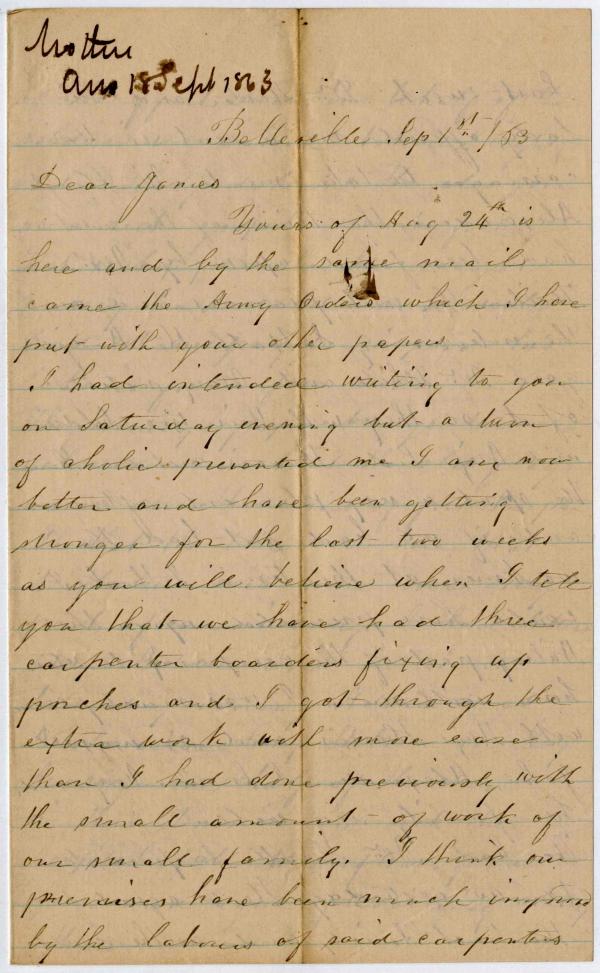 Mother
Ans 18 Sept 1863
Belleville Sep 1st /63
Dear James
Yours of Aug 24th is
here and by the same mail
came the Army Orders which I have
put with your other papers
I had intended writing to you
on Saturday evening but a turn
of cholic prevented me I am now
better and have been getting
stronger for the last two weeks
as you will believe when I tell
you that we have had three
carpenter boarders fixing up
porches and I got through the
extra work with more ease
than I had done previously with
the small amount of work of
our small family. I think our
premises have been much improved
by the labours of said carpenters